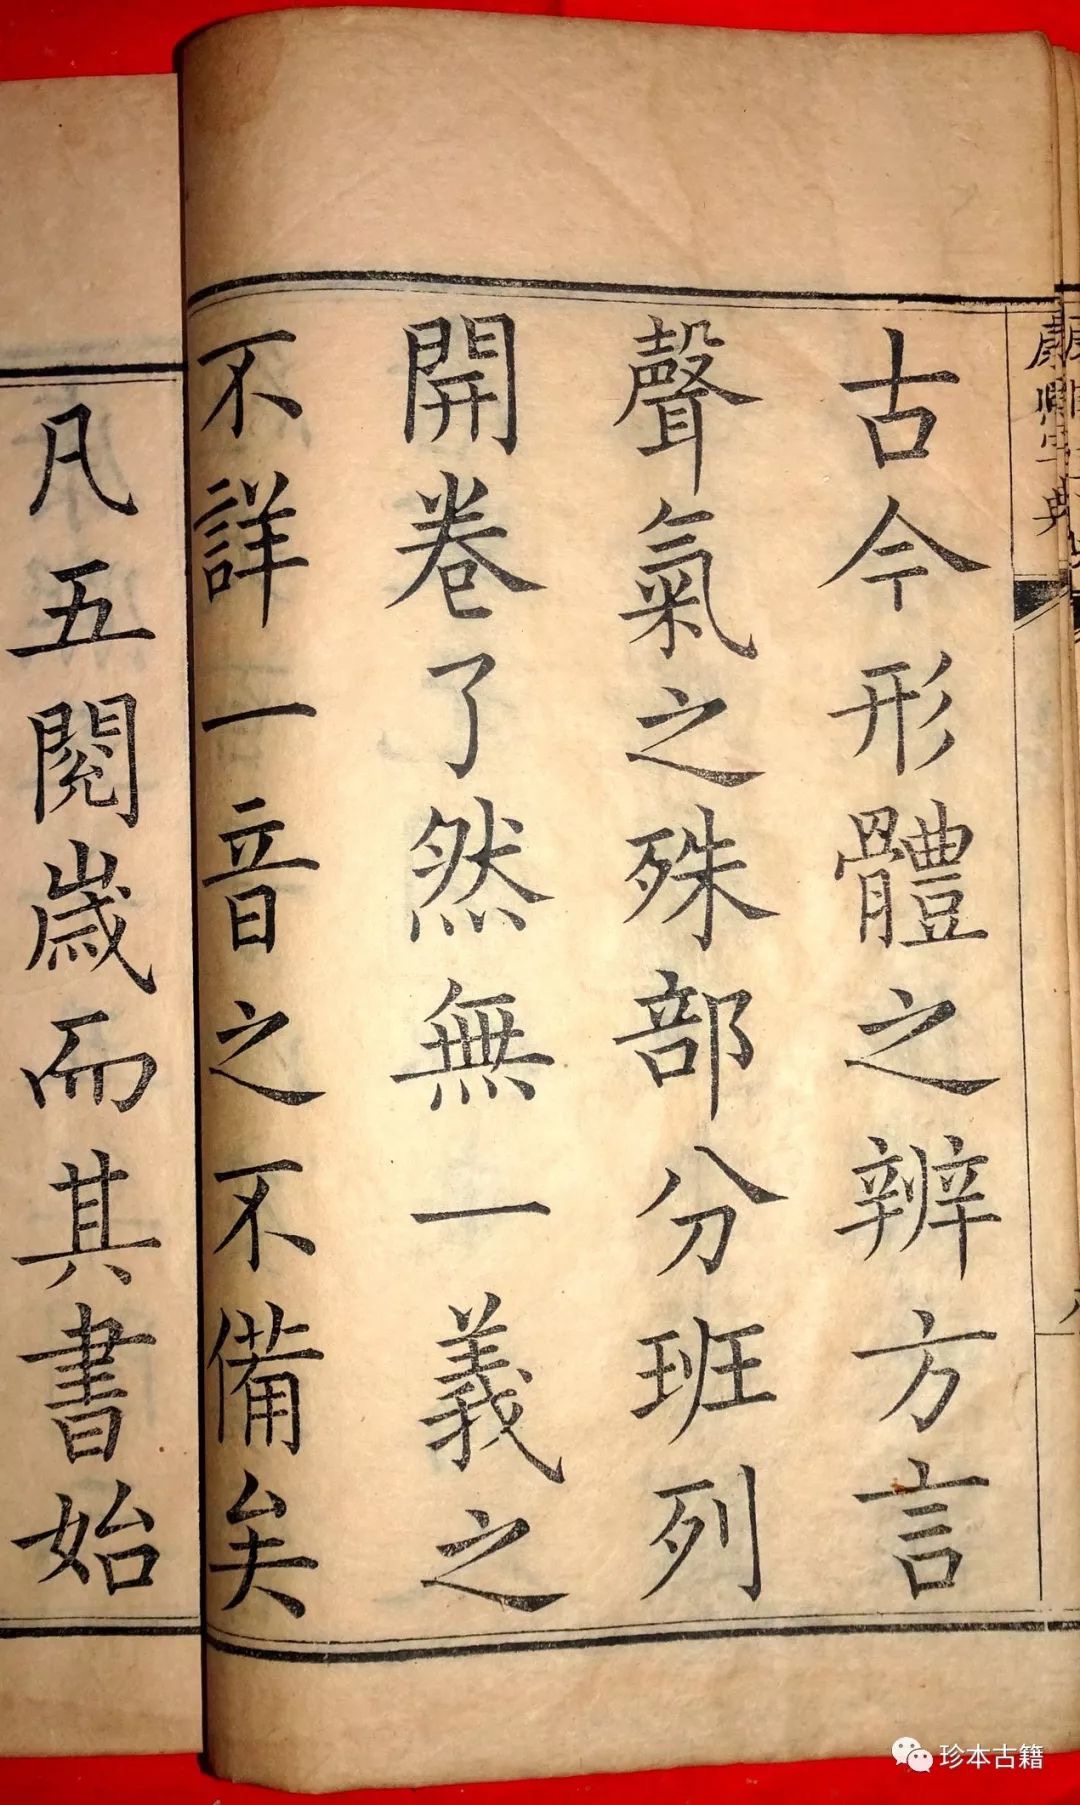 康熙字典
古今形體之辨方言
聲氣之殊部分班列
開卷了然無一義之
不詳一音之不備矣
凡五閱歲而其書始
珍本古籍